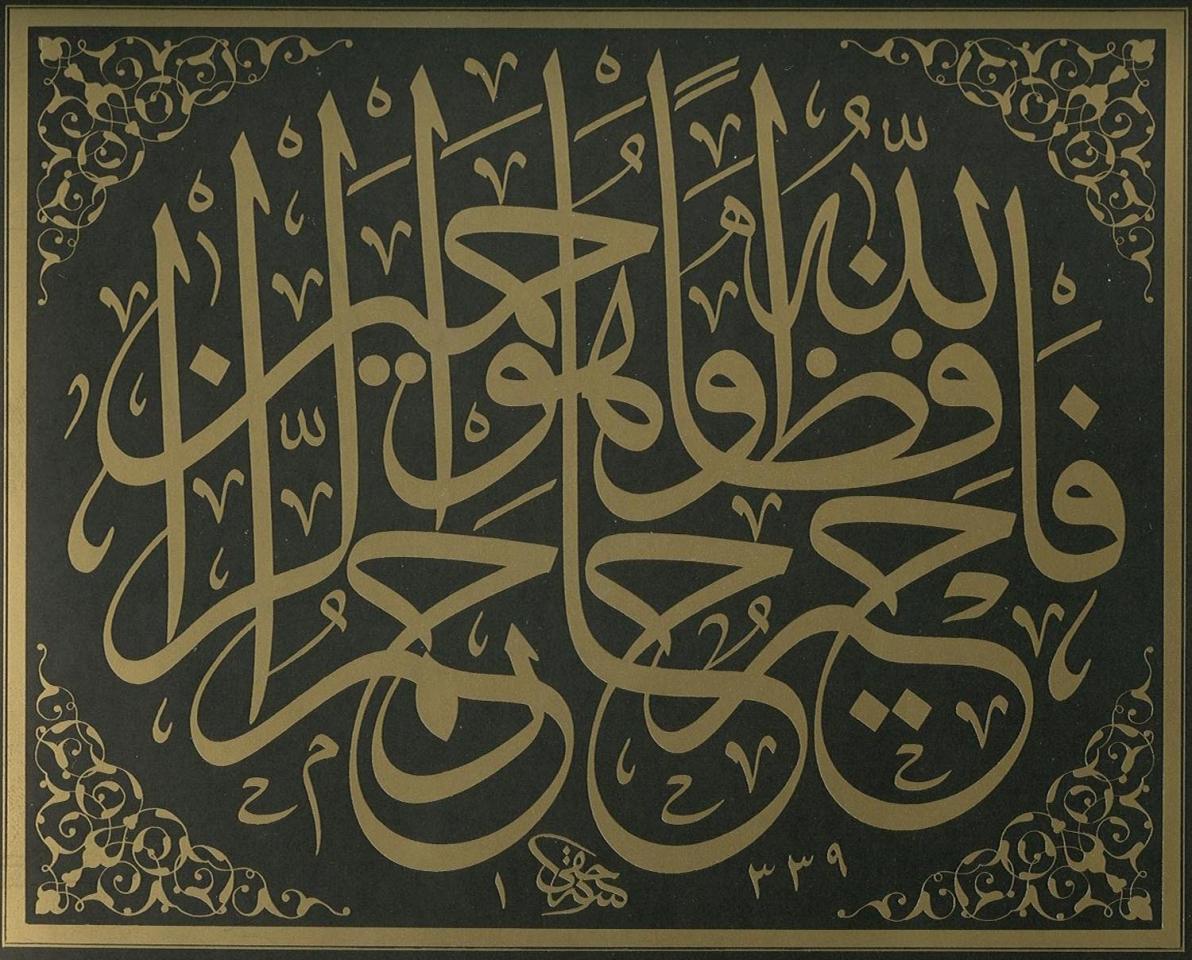 فالله خير حافظا وهو ارحم الراحمين
حقي ١٣٣٩